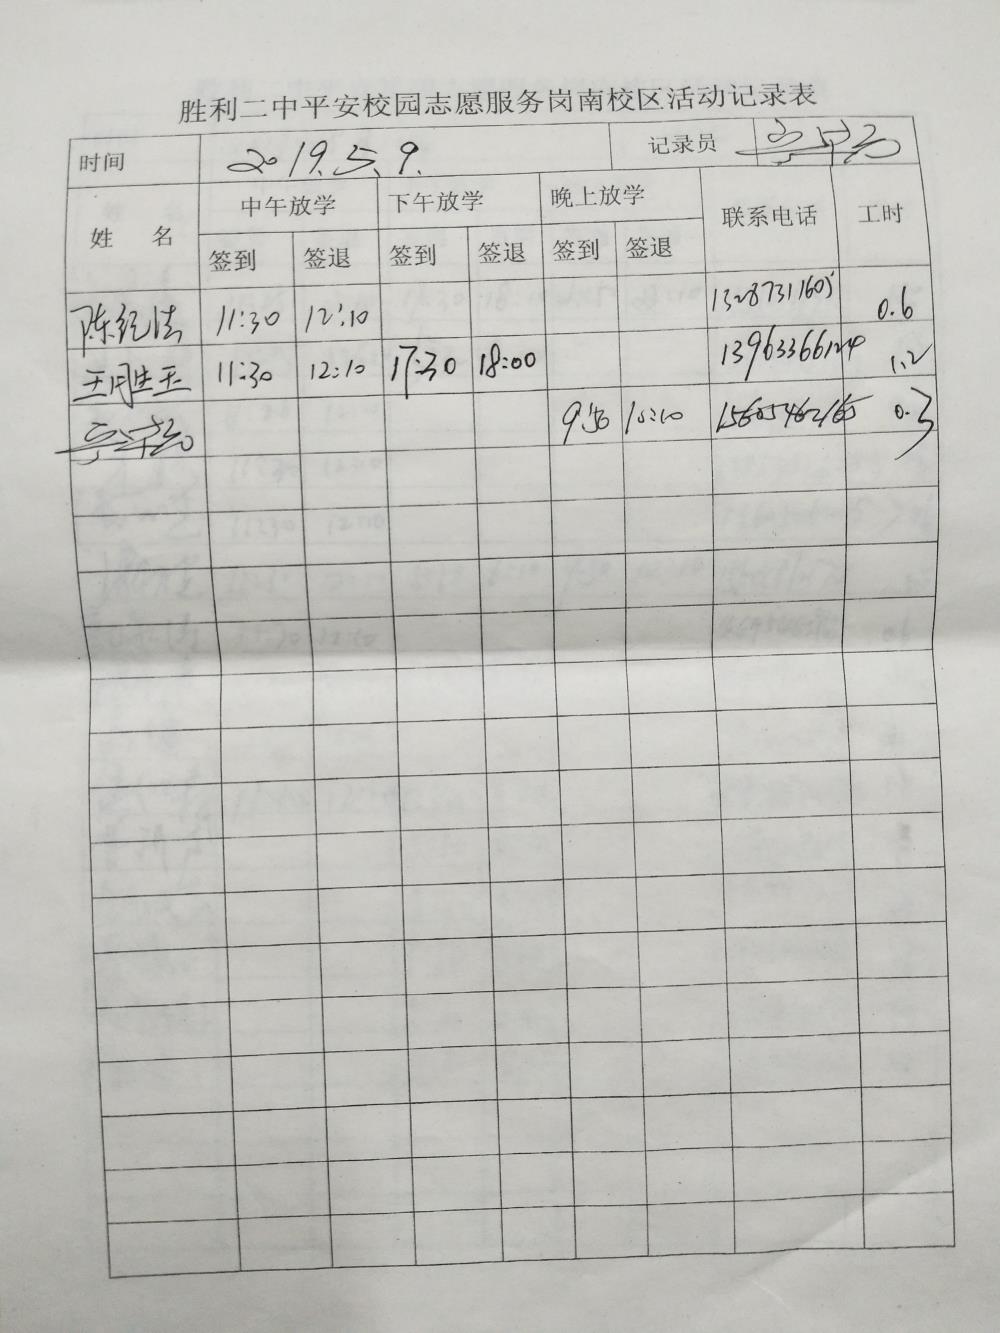 胜利二中平安校园志愿服务岗南校区活动记录表
时间 2019.5.9. 记录员
姓 名 中午放学 下午放学 晚上放学 联系电话 工时
签到 签退 签到 签退 签到 签退
陈纪法 11:30 12:10 13287311605 0.6
王胜玉 11:30 12:10 17:30 18:00 13963366124 1.2
9:50 10:10 15605462165 0.3